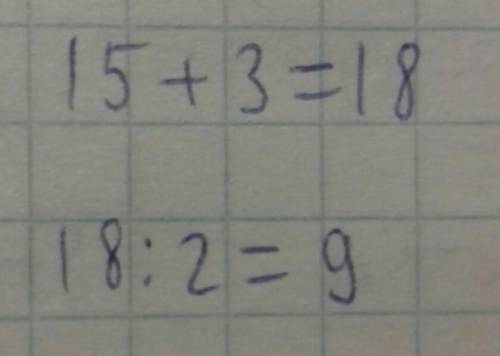 15+3=18
18:2=9